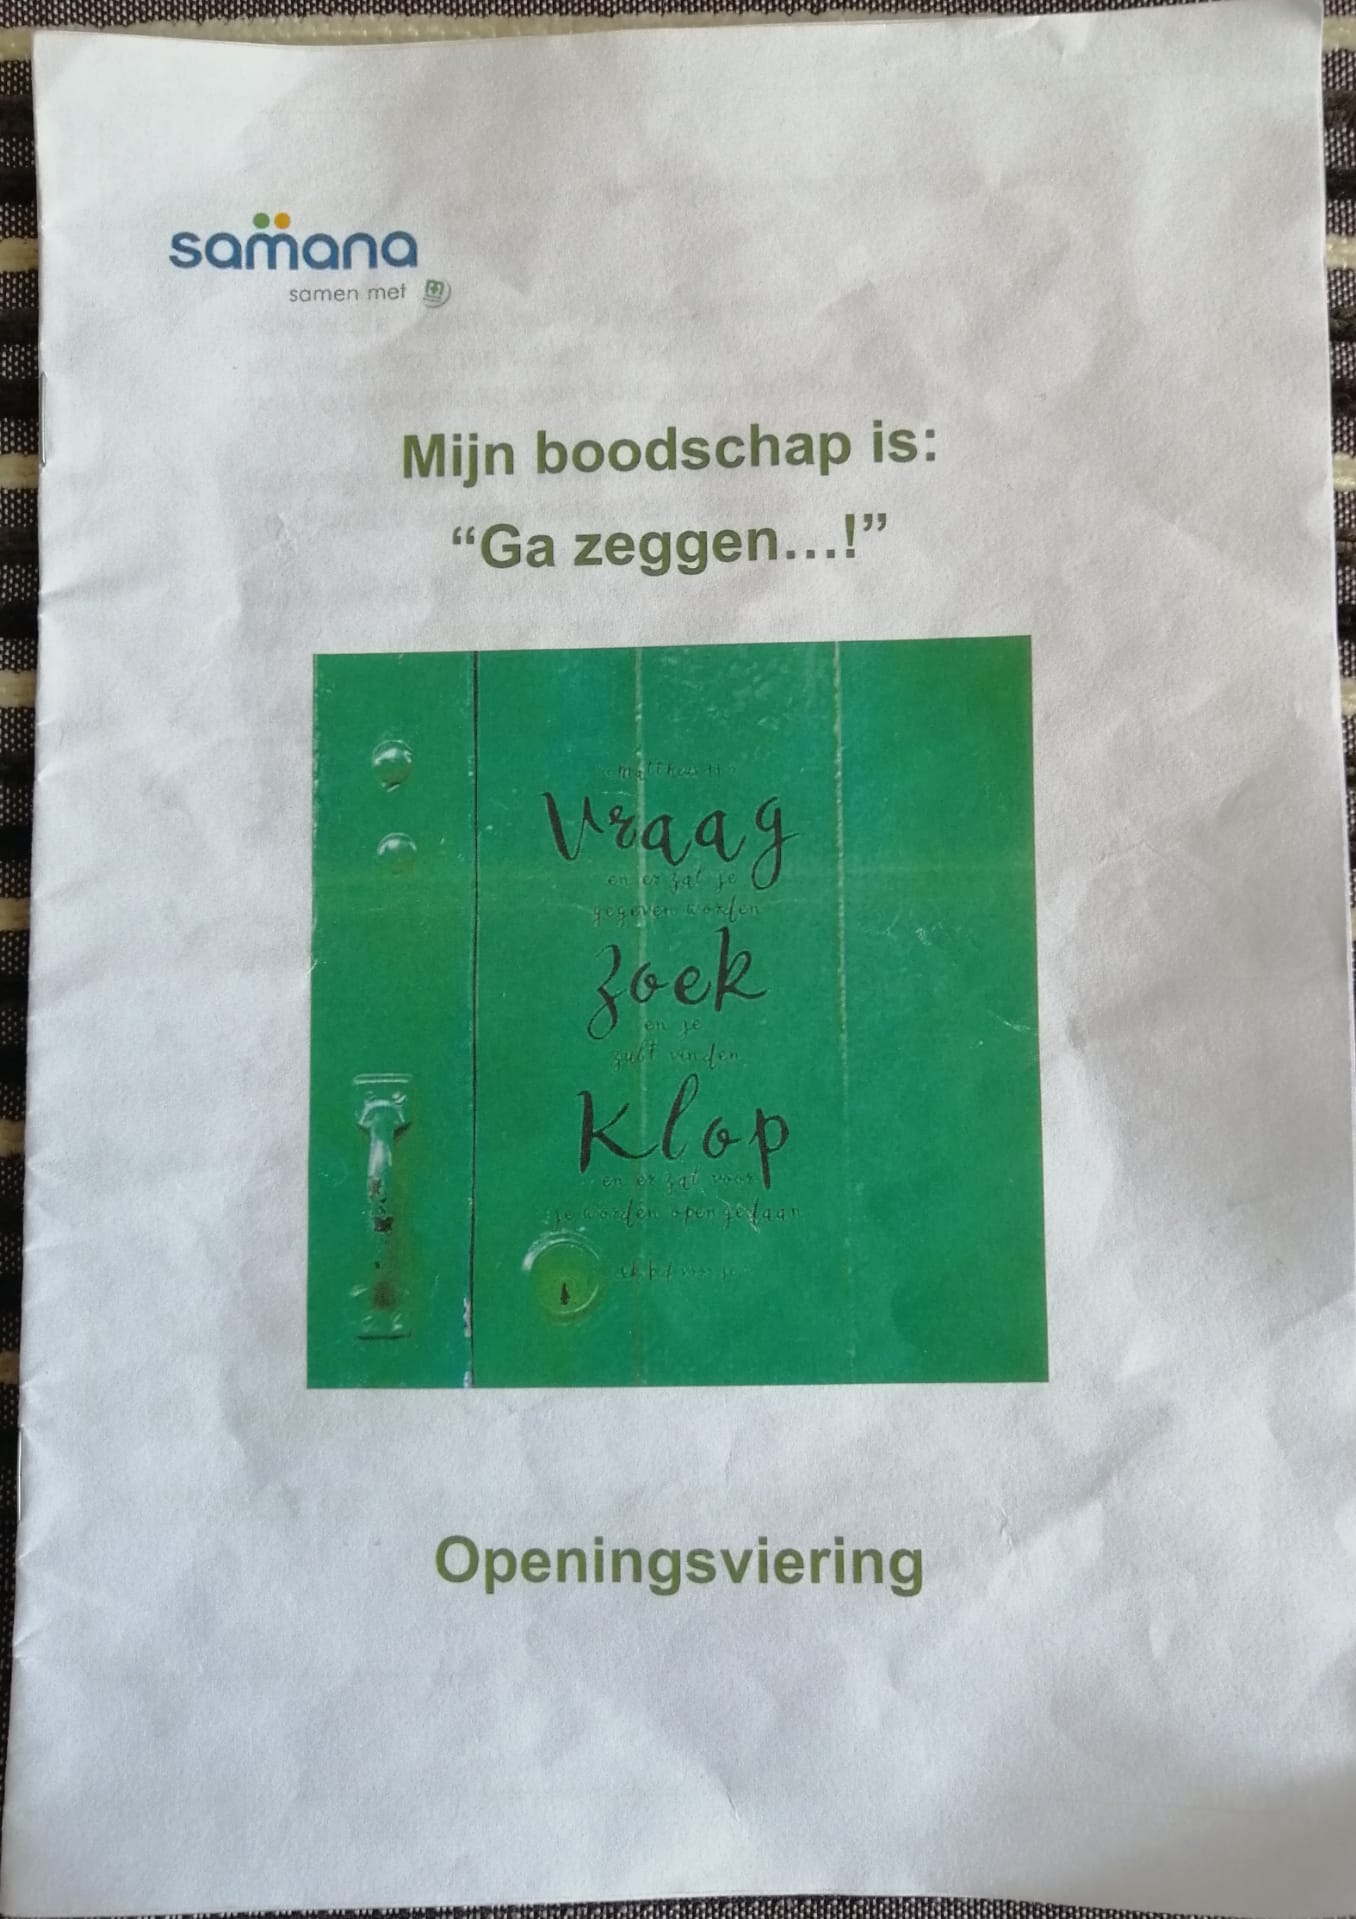 samana
samen met
Mijn boodschap is:
“Ga zeggen...!”
Vraag
en er zal je
gegeven worden
Zoek
en je
zult vinden
Klop
en er zal voor
je worden opengedaan
Openingsviering